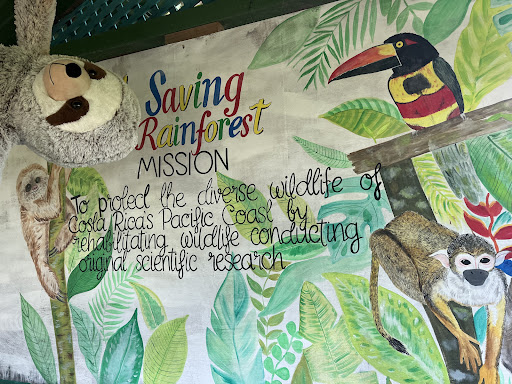 Saving
Rainforest
MISSION
To protect the diverse wildlife of
Costa Rica's Pacific Coast by
rehabilitating wildlife conducting
original scientific research